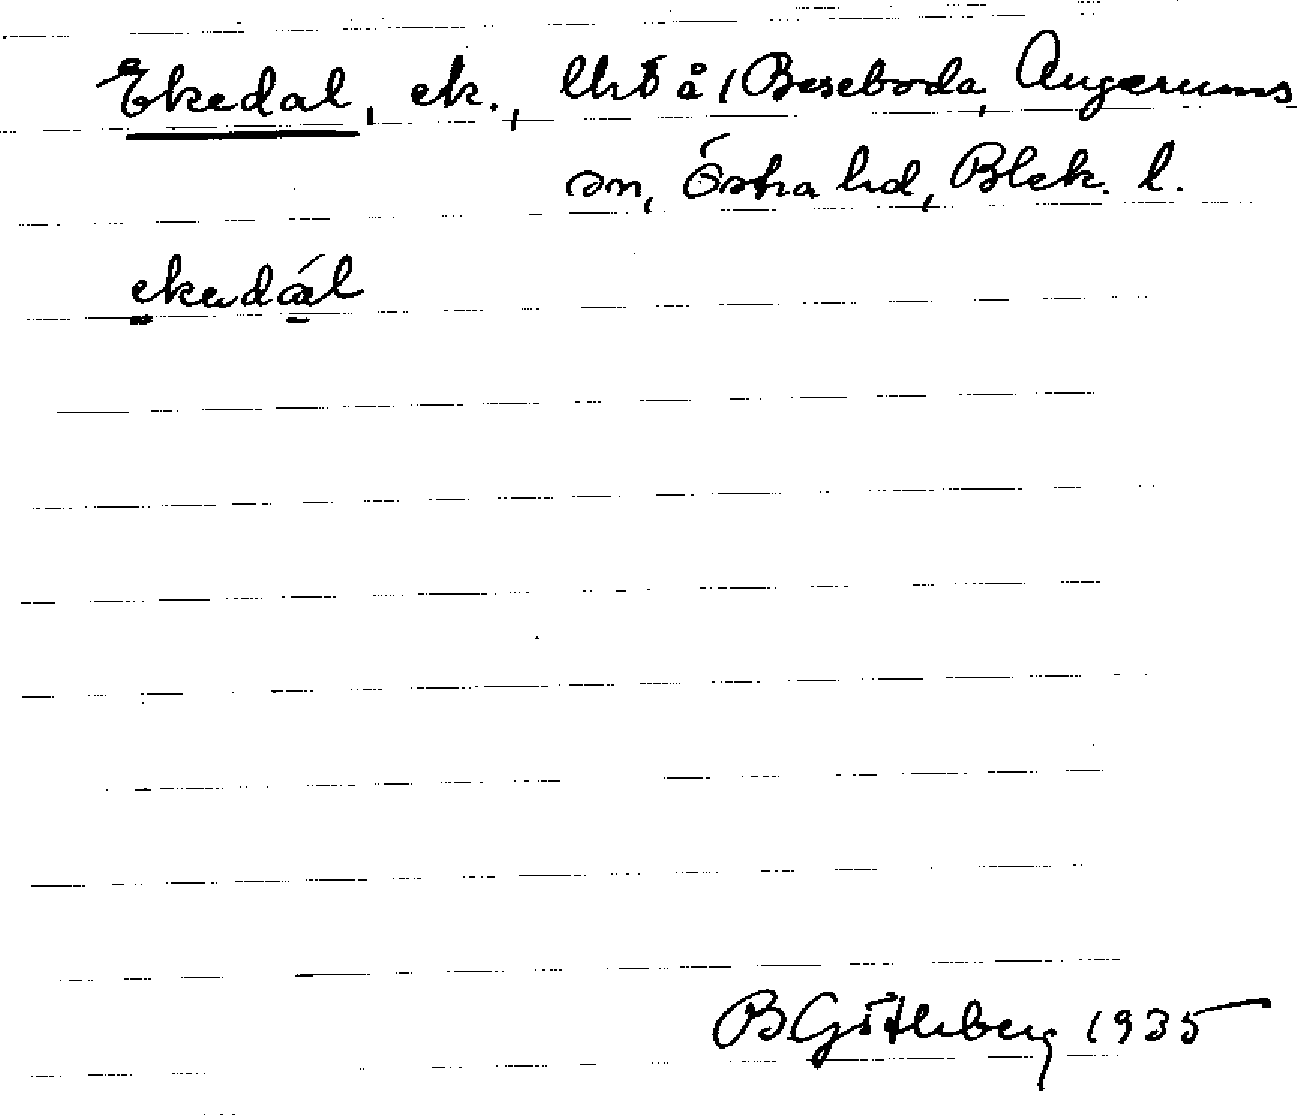 Ekedal, ek., å 1 Beseboda, Augerums
sn, Östra hd, Blek. l.
ekedál
B. Götlhberg 1935